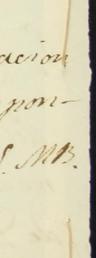 acion
pon-
S. MB.